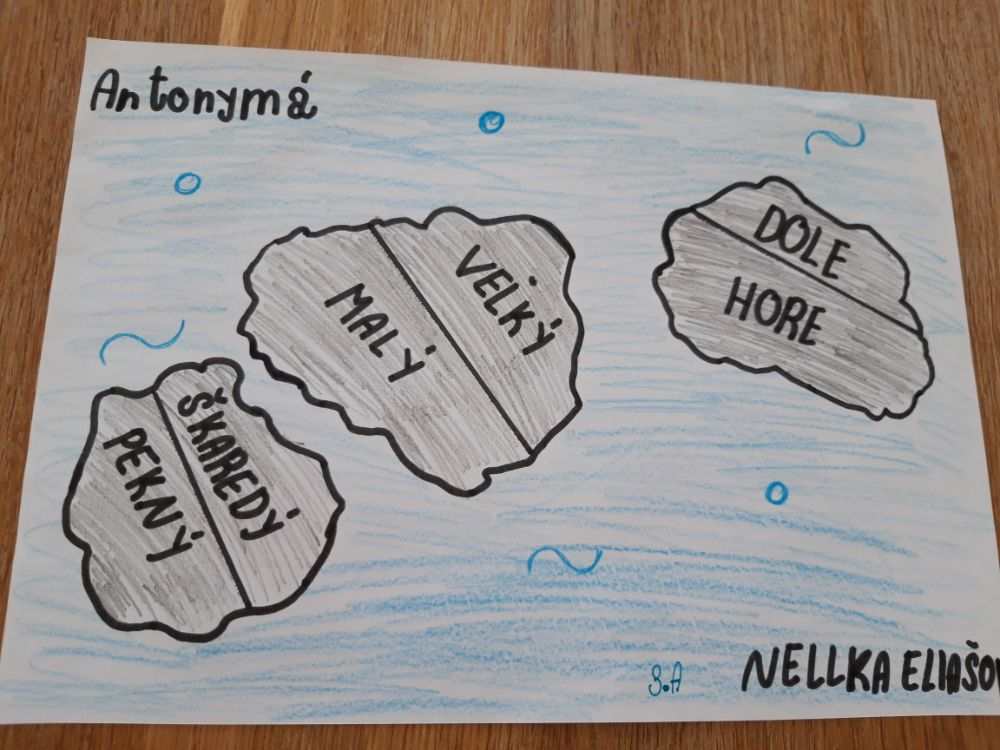 Antonymá
DOLE
HORE
VEĽKÝ
MALÝ
ŠKAREDÝ
PEKNÝ
3.A
NELLKA